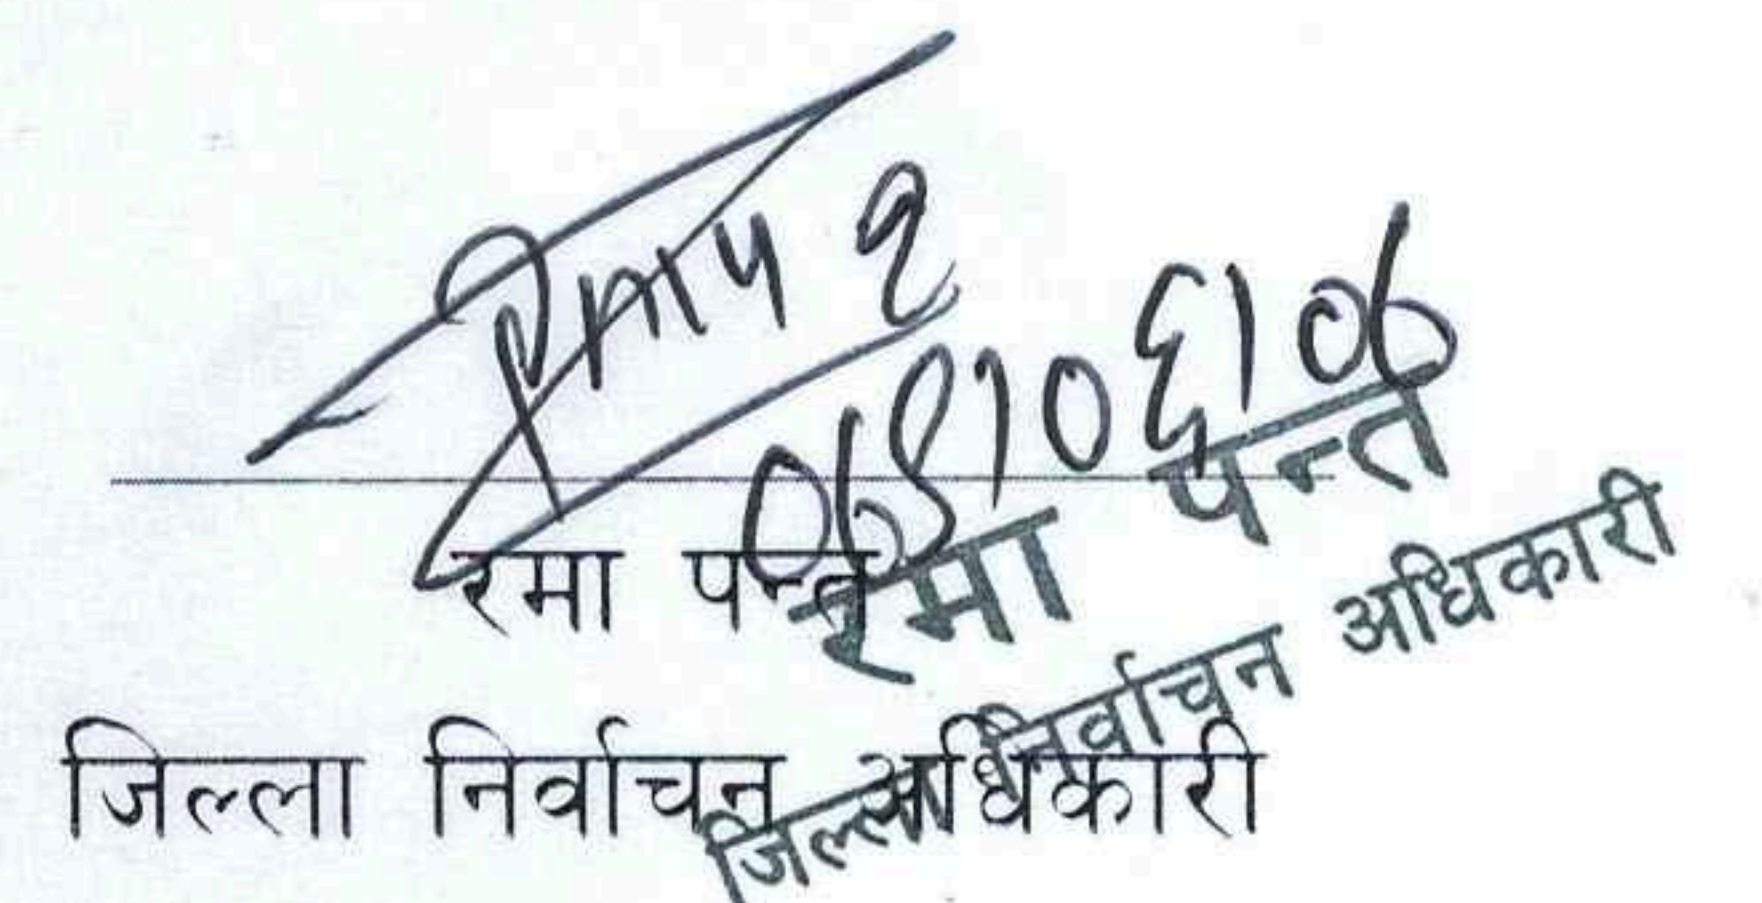 रमा पन्त
जिल्ला निर्वाचन अधिकारी
रमा पन्त
जिल्ला निर्वाचन अधिकारी